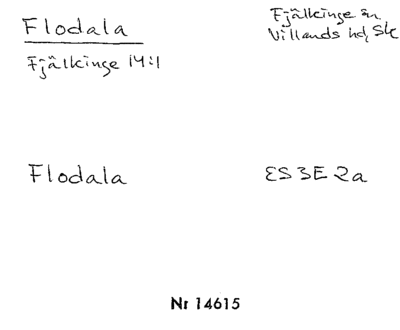 Flodala
Fjälkinge sn
Villands hd, Sk
Fjälkinge 14:1
Flodala
ES 3E 2a
Nr 14615